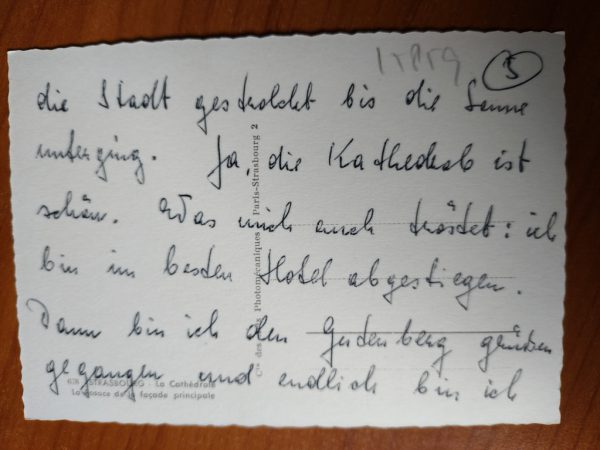 5
die Stadt gestrolcht bis die Sonne
unterging. Ja, die Kathedrale ist
schön. Was mich auch tröstet: ich
bin im besten Hotel abgestiegen.
Dann bin ich den Gutenberg grüßen
gegangen und endlich bin ich
Cie des Photomécaniques Paris-Strasbourg 2
STRASBOURG - La Cathédrale
La rosace de la façade principale